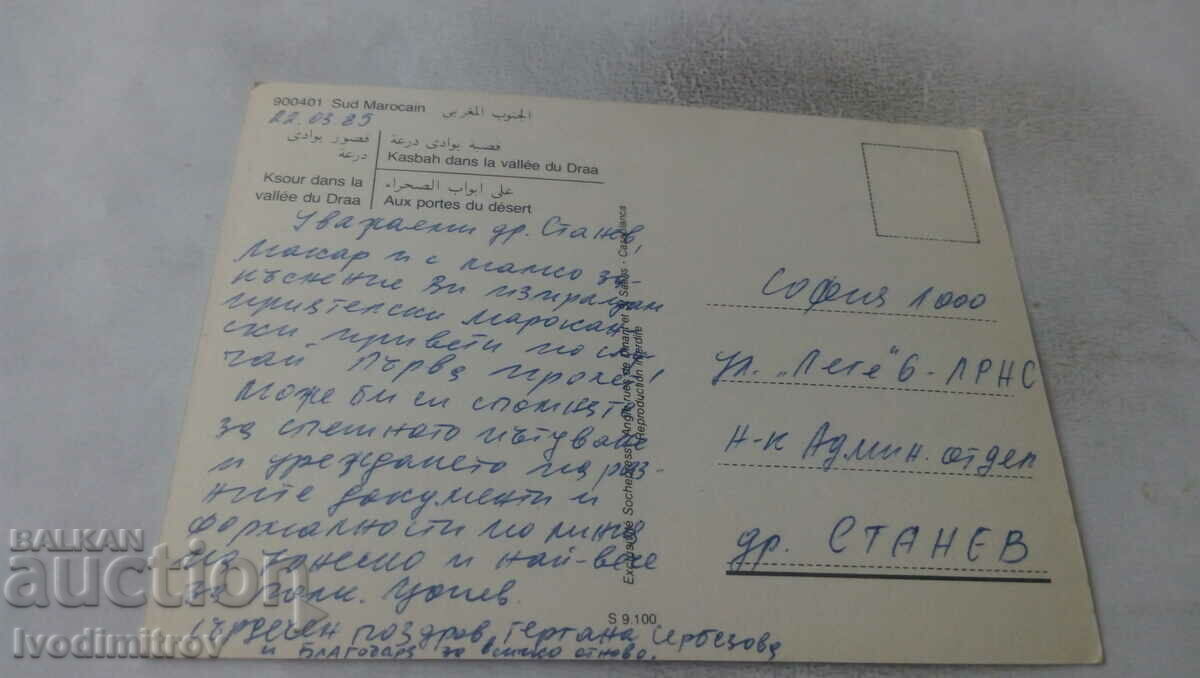 900401 Sud Marocain الجنوب المغربي
22.03 89
قصور بوادى
درعة
Ksour dans la
vallée du Draa
قصبة بوادى درعة
Kasbah dans la vallée du Draa
على ابواب الصحراء
Aux portes du désert
Уважаеми др. Станев,
Макар и с малко за-
къснение Ви изпращам
приятелски марокан-
ски привети по слу-
чай "Първа пролет"!
Може би си спомняте
за спешното пътуване
и уреждането на раз-
ните документи и
формалности по линия
на и най-вече
за полк. Цонев.
Сърдечен поздрав, Гергана
и Благодаря за всичко отново.
Exclusivité Sochepress - Angle rues de Dinant et St Saëns - Casablanca
Reproduction interdite
S 9.100
София 1000
ул. "Леге" 6 - ЛРНС
Н-к Админ. отдел
др. СТАНЕВ
BALKAN
auction
Ivodimitrov